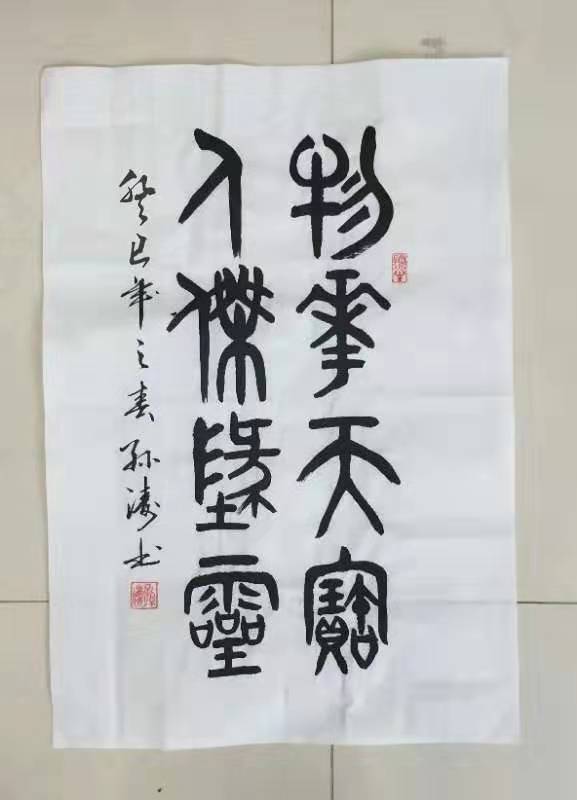 物華天寶
人傑墬靈
癸巳年之春孫濤书